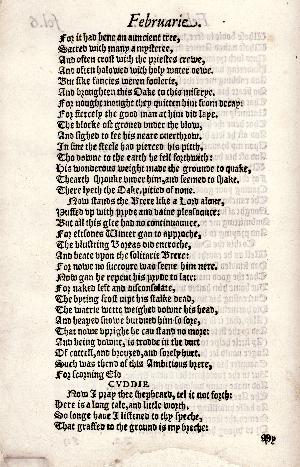 fol. 6
Februarie.
For it had bene an auncient tree,
Sacred with many a mysteree,
And often crost with the priestes crewe,
And often halowed with holy water dewe.
But sike fancies weren foolerie,
And broughten this Oake to this miserye.
For nought mought they quitten him from decay:
For fiercely the good man at him did laye.
The blocke oft groned vnder the blow,
And sighed to see his neare ouerthrow.
In fine the steele had pierced his pitth,
Tho downe to the earth he fell forthwith:
His wonderous weight made the grounde to quake,
Thearth shronke vnder him, and seemed to shake.
There lyeth the Oake, pitied of none.
Now stands the Brere like a Lord alone,
Puffed vp with pryde and vaine pleasaunce:
But all this glee had no continuaunce.
For eftsones Winter gan to approche,
The blustring Boreas did encroche,
And beate vpon the solitarie Brere:
For nowe no succour was seene him nere.
Now gan he repent his pryde to late:
For naked left and disconsolate,
The byting frost nipt his stalke dead,
The watrie wette weighed downe his head,
And heaped snowe burdned him so sore,
That nowe vpright he can stand no more:
And being downe, is trodde in the durt
Of cattell, and brouzed, and sorely hurt.
Such was thend of this Ambitious brere,
For scorning Eld
CVDDIE.
Now I pray thee shepheard, tel it not forth:
Here is a long tale, and little worth.
So longe haue I listened to thy speche,
That graffed to the ground is my breche:
My